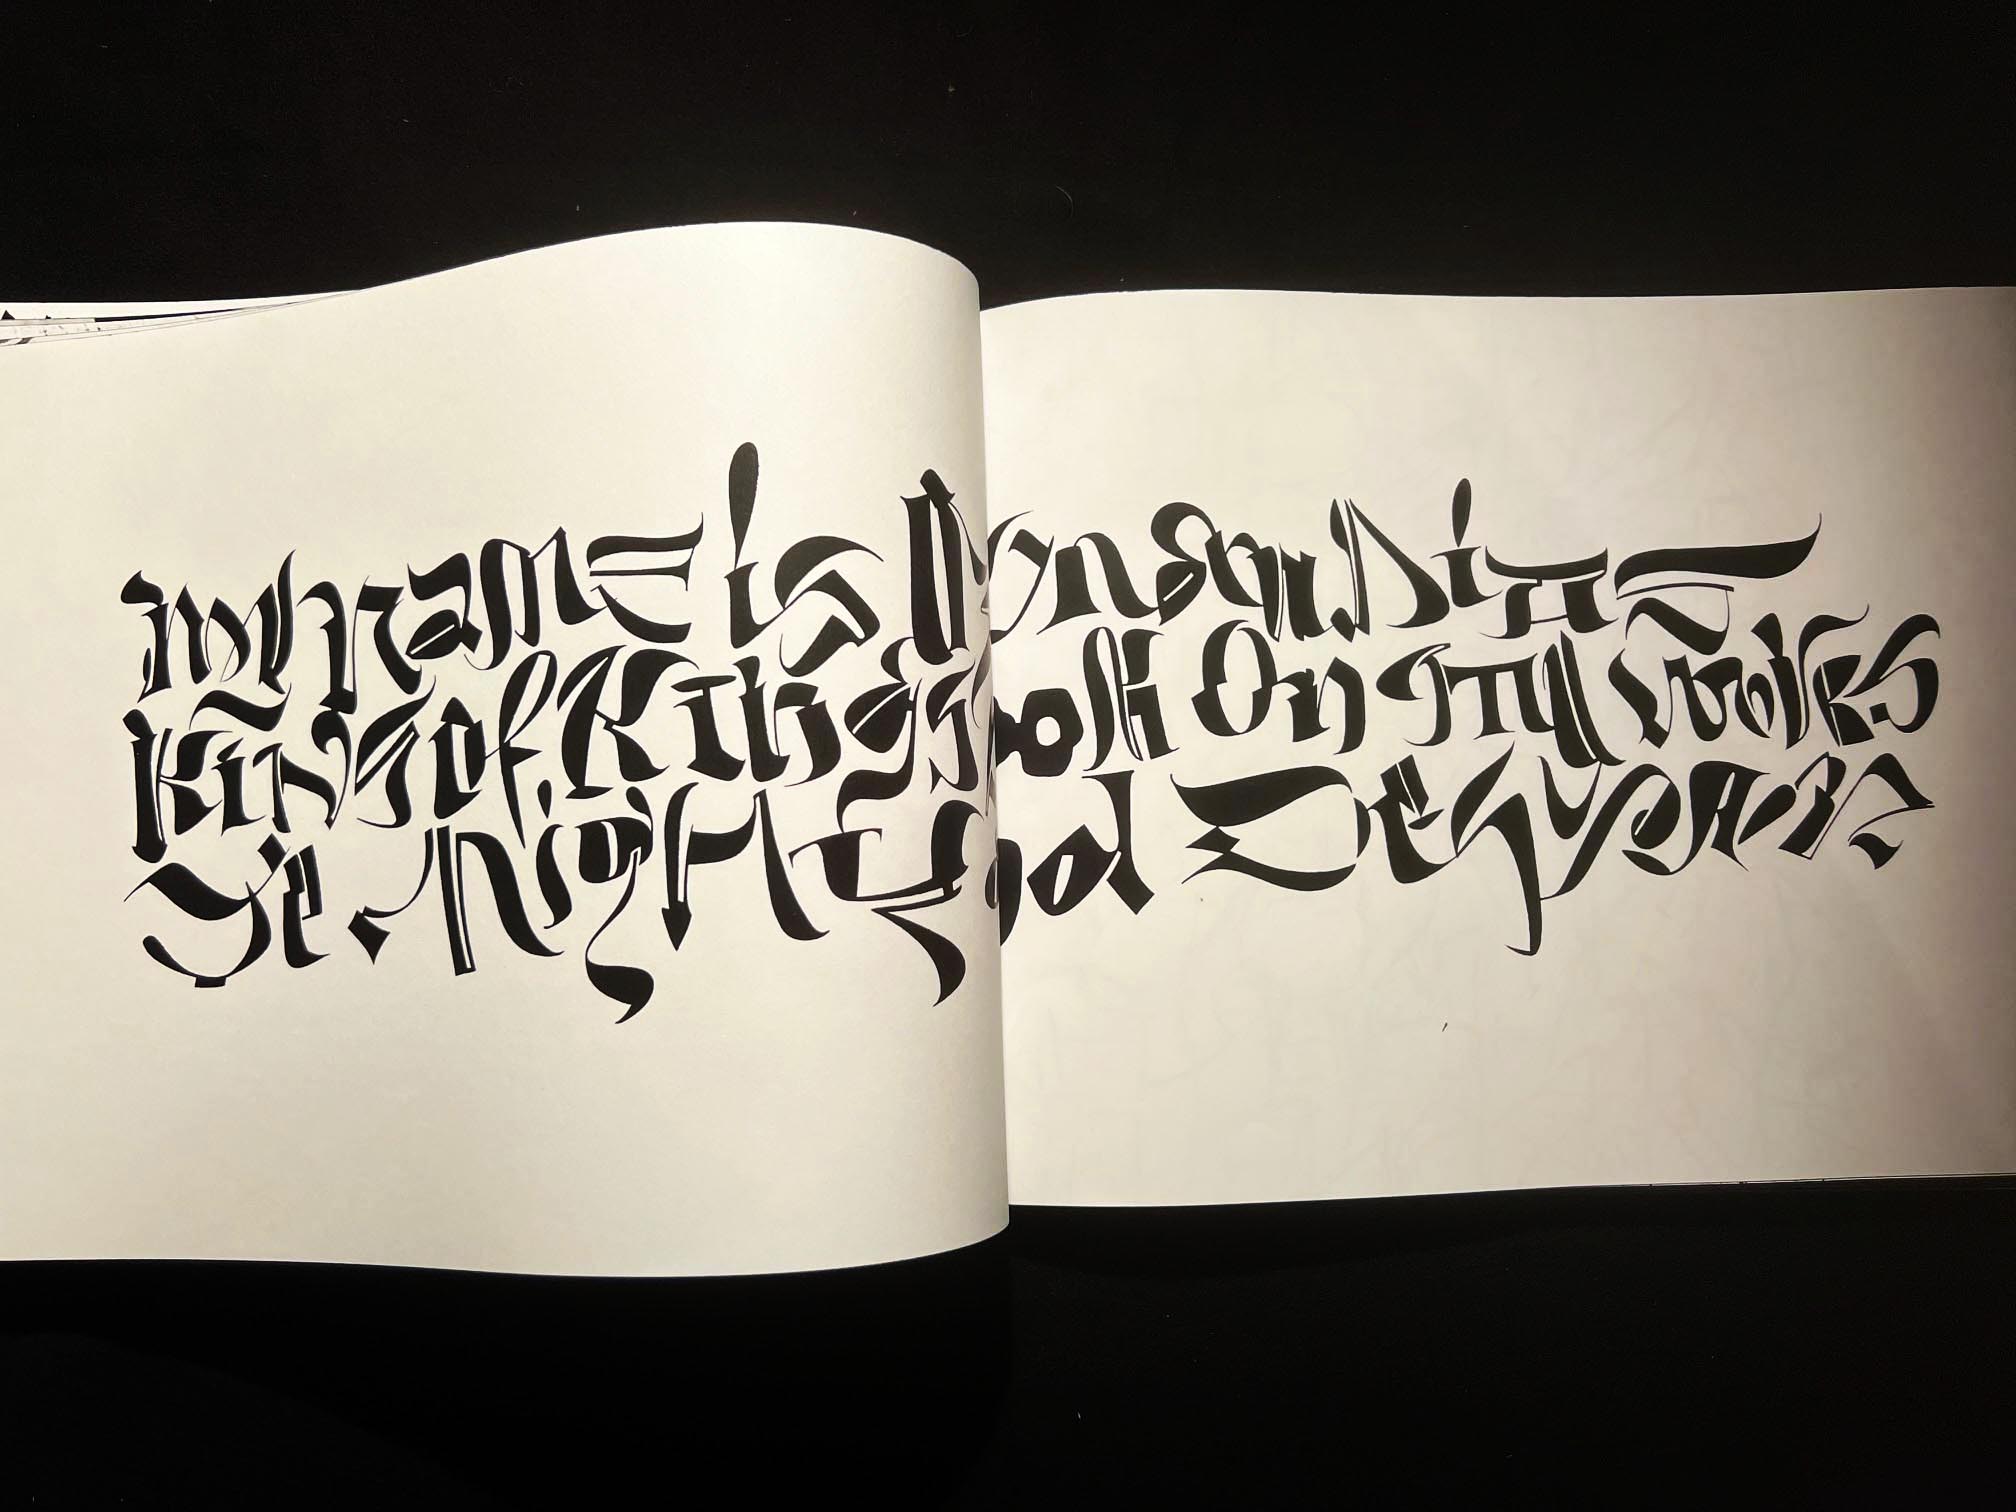 my name is OzymanDias
King of Kings Look On my works
Ye Mighty and Despair